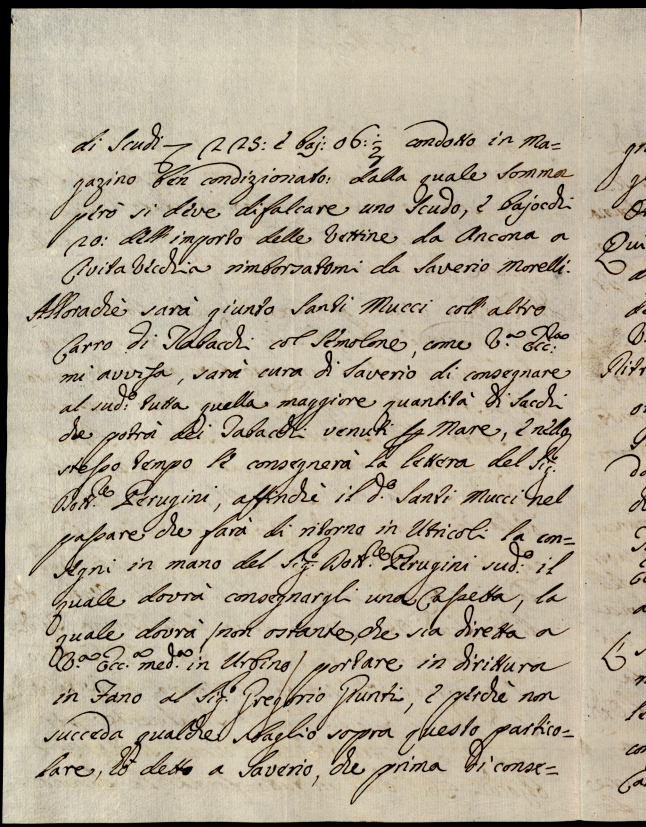 di Scudi 223: è baj: 06:½ condotto in Ma=
gazino ben condizionato: dalla quale somma
però si deve difalcare uno Scudo, è bajocchi
20: dell'importo delle Vettine da Ancona a
Civita Vecchia rimborsatomi da Saverio Morelli.
Allorachè sarà giunto Santi Mucci coll'altro
Carro di Tabacchi col Semolone, come V.ra Ecc.za
mi avvisa, sarà cura di Saverio di consegnare
al sud.o tutta quella maggiore quantità di Sacchi
che potrà dei Tabacchi venuti per Mare, è nello
stesso tempo le consegnerà la lettera del Sig.
Dott.re Perugini, affinchè il d.o Santi Mucci nel
passare che farà di ritorno in Utricoli la con=
segni in mano del Sig.r Dott.re Perugini sud.o il
quale dovrà consegnargli una Cassetta, la
quale dovrà (non ostante che sia diretta a
V.ra Ecc.za med.ma in Urbino) portare in dirittura
in Fano al Sig.r Gregorio Giunti, è perchè non
succeda qualche sbaglio sopra questo partico=
lare, hò detto a Saverio, che prima di conse=